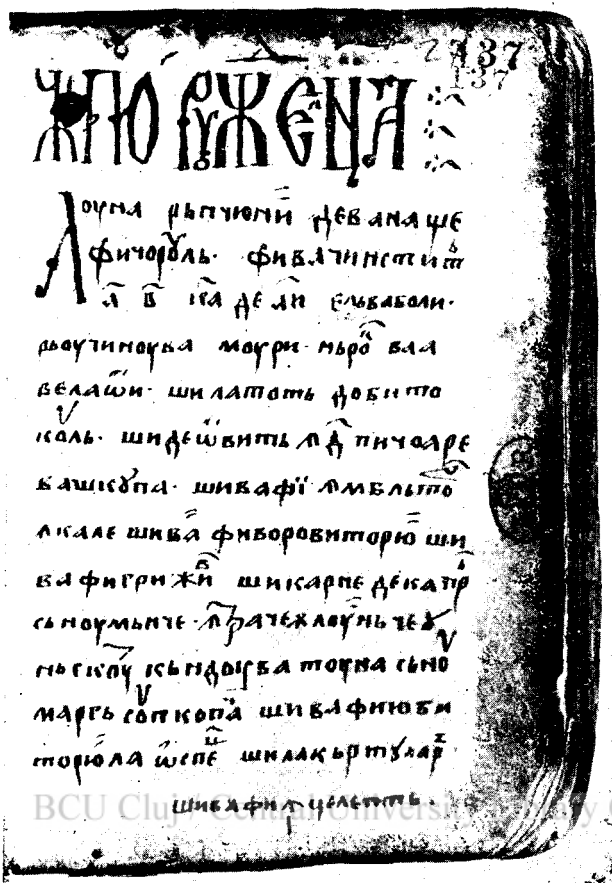 137
137
Луна рьпчюнїй деванаще
фичорꙋль· фивачинстит
л҃ в҃ ка де ани ельваболи·
рьоучиноува моури·ньро вла
велаѿи· шилатоть добито
коль· шидеѿвить ꙟд пичоаре
вашкꙋпа· шивафї ꙟмбльто
лкале шива фиборовиторю ши
вафигрижи шикарне декапр
сьноумьнче·
ньскпꙋ кьндырва тоуна сьно
маргь сопкопа шивафиюби
торюла ѡспе шилакьртꙋлар
шивафиꙟцелепть·
BCU Cluj / Central University Library